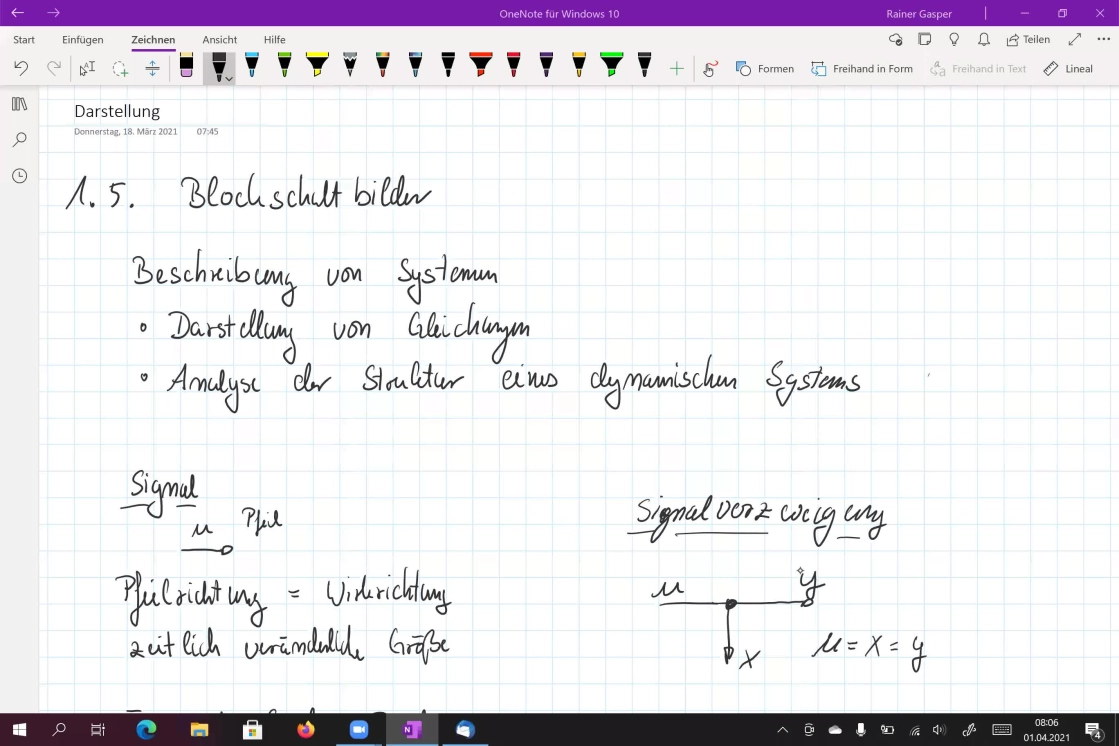 OneNote für Windows 10
Rainer Gasper
Start Einfügen Zeichnen Ansicht Hilfe
Teilen
Formen Freihand in Form Freihand in Text Lineal
Darstellung
Donnerstag, 18. März 2021 07:45
1.5. Blockschaltbilder
Beschreibung von Systemen
• Darstellung von Gleichungen
• Analyse der Struktur eines dynamischen Systems
Signal
u Pfeil
Pfeilrichtung = Wirkrichtung
zeitlich veränderliche Größe
Signalverzweigung
u y
x u = x = y
08:06
01.04.2021
4